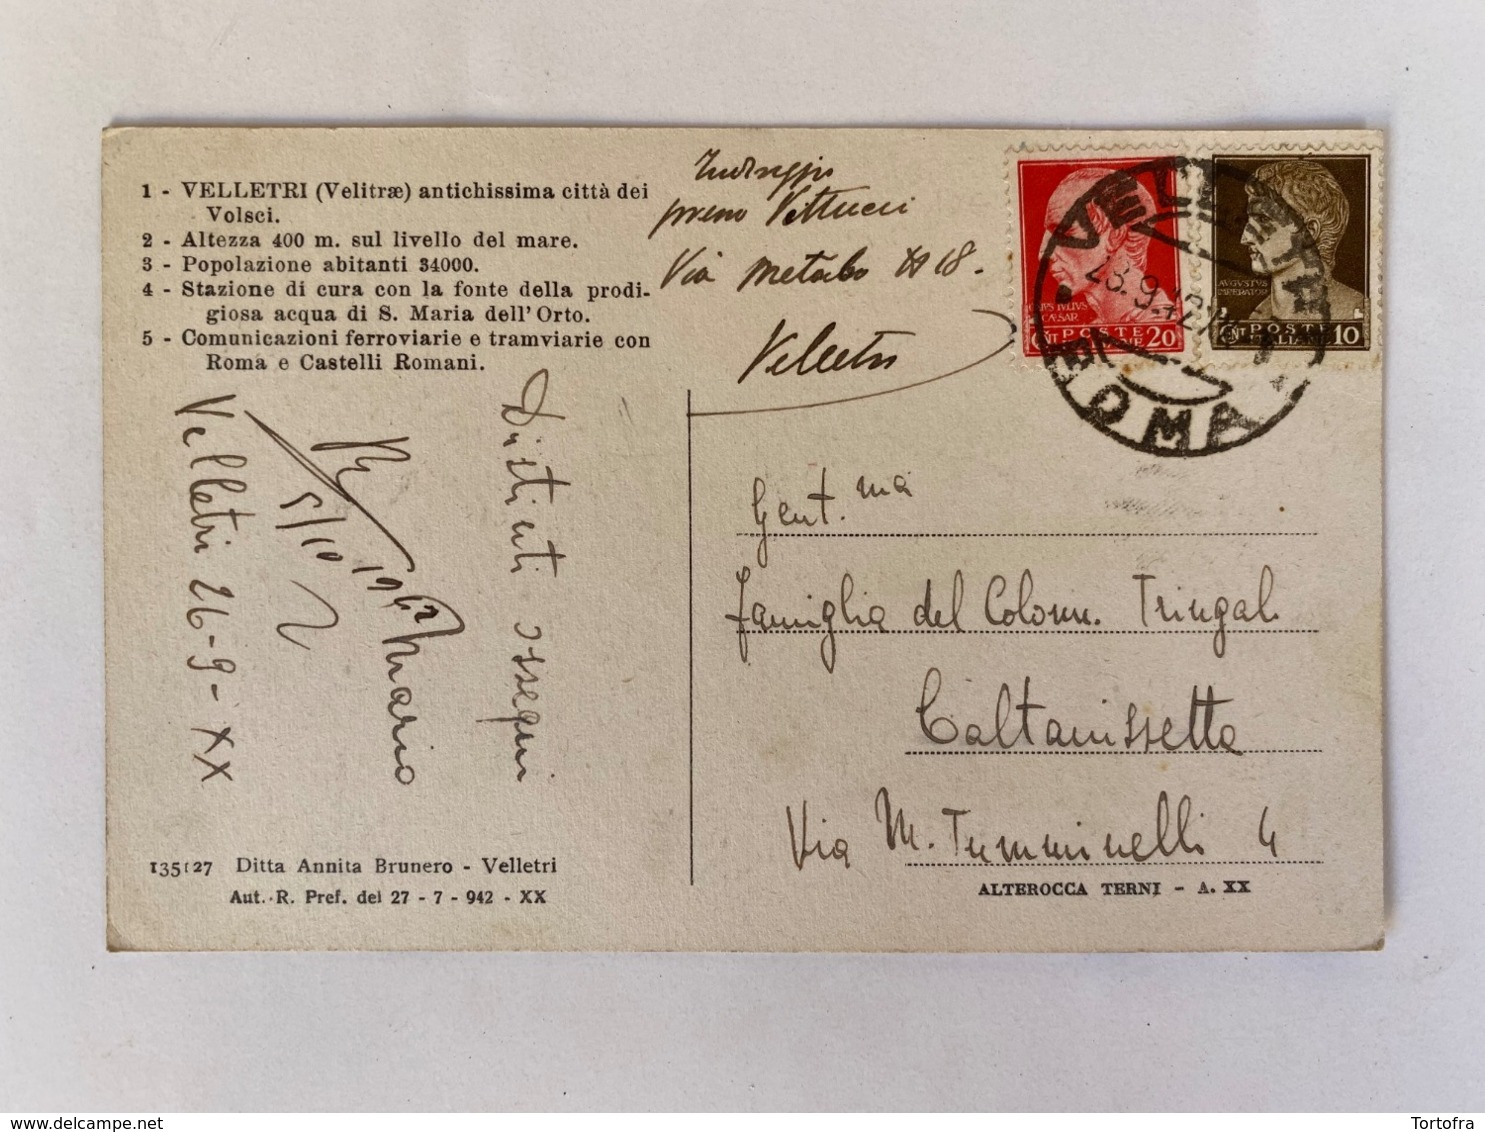 1 - VELLETRI (Velitræ) antichissima città dei
Volsci.
2 - Altezza 400 m. sul livello del mare.
3 - Popolazione abitanti 34000.
4 - Stazione di cura con la fonte della prodi-
giosa acqua di S. Maria dell'Orto.
5 - Comunicazioni ferroviarie e tramviarie con
Roma e Castelli Romani.
Vettucci
Via Metabo 18.
Velletri
CAESAR
CENT POSTE 20
AUGUSTUS
IMPERATOR
POSTE
ITALIANE 10
VELLETRI
28.9.42
ROMA
Distinti ossequi
Mario
5/10 1942
Velletri 26-9-XX
Gent.ma
famiglia del Colonn. Tringali
Caltanissetta
Via M. Tumminelli 4
135127 Ditta Annita Brunero - Velletri
Aut. R. Pref. del 27 - 7 - 942 - XX
ALTEROCCA TERNI - A. XX
Tortofra